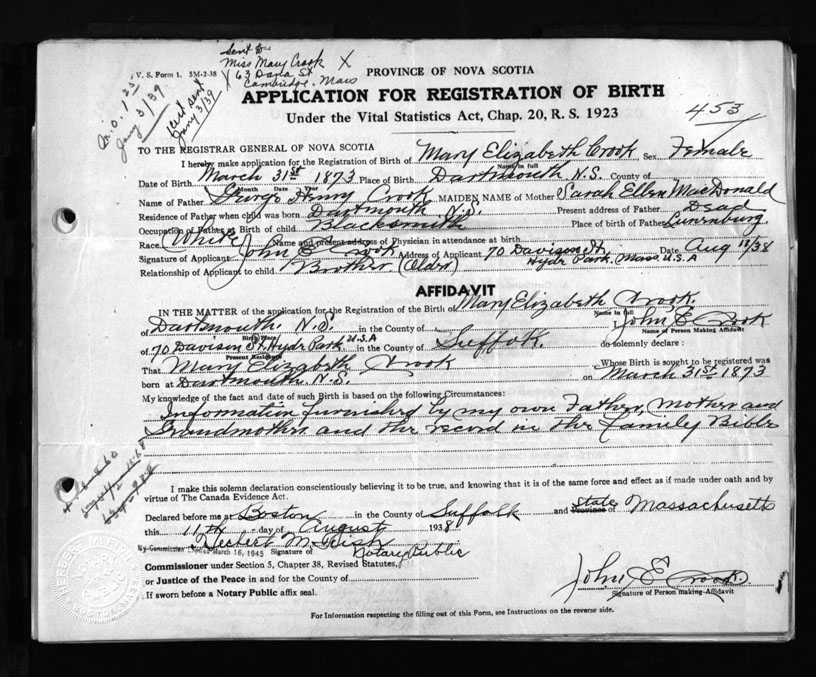 Sent to
Miss Mary Crook X
X 63 Dana St
Cambridge, Mass
V. S. Form 1. 5M-2-38
M.O. 1 25
Jany 3/39
Cert sent
Jany 3/39
PROVINCE OF NOVA SCOTIA
APPLICATION FOR REGISTRATION OF BIRTH
Under the Vital Statistics Act, Chap. 20, R. S. 1923
453
TO THE REGISTRAR GENERAL OF NOVA SCOTIA
I hereby make application for the Registration of Birth of Mary Elizabeth Crook Sex Female
Name in full
Date of Birth March 31st 1873 Place of Birth Dartmouth N.S. County of
Month Year
Name of Father George Henry Crook MAIDEN NAME of Mother Sarah Ellen MacDonald
Residence of Father when child was born Dartmouth N.S. Present address of Father Dead
Occupation of Father at Birth Blacksmith Place of birth of Father Lunenburg
Race (White) Name and present address of Physician in attendance at birth
Signature of Applicant John E Crook Address of Applicant 70 Davison St Date Aug 11/38
Hyde Park. Mass U.S.A
Relationship of Applicant to child Brother (Older)
AFFIDAVIT
IN THE MATTER of the application for the Registration of the Birth of Mary Elizabeth Crook.
Name in full
of Dartmouth, N.S. in the County of I John E Crook
Birth Place Name of Person Making Affidavit
of 70 Davison St. Hyde Park U.S.A in the County of Suffolk. do solemnly declare :
Present Residence
That Mary Elizabeth Crook Whose Birth is sought to be registered was
born at Dartmouth N.S. on March 31st 1873
My knowledge of the fact and date of such Birth is based on the following Circumstances:
Information furnished by my own Father, Mother and
Grandmother and the record in the Family Bible
I make this solemn declaration conscientiously believing it to be true, and knowing that it is of the same force and effect as if made under oath and by
virtue of The Canada Evidence Act.
Declared before me at Boston in the County of Suffolk and Province State of Massachusetts
this 11th day of August 1938
Herbert M
My Commission Expires March 16, 1945 Signature of Notary Public
Commissioner under Section 5, Chapter 38, Revised Statutes,
or Justice of the Peace in and for the County of
If sworn before a Notary Public affix seal.
John E Crook.
Signature of Person making Affidavit
For Information respecting the filling out of this Form, see Instructions on the reverse side.